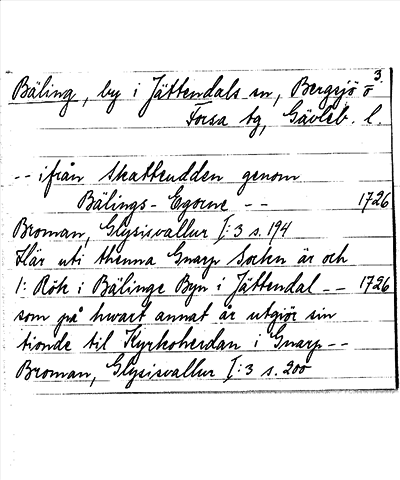 3.
Bäling, by i Jättendals sn, Bergsjö o
Forsa tg, Gävleb. l.
-- ifrån Skatteudden genom
Bälings-Egorne -- 1726
Broman, Glysisvallur I:3 s. 194
Här uti thenna Gnarp Sochn är och
1: Rök i Bälinge Byn i Jättendal -- 1726
som på hwart annat år utgiör sin
tionde til Kyrkoherdan i Gnarp --
Broman, Glysisvallur I:3 s. 200